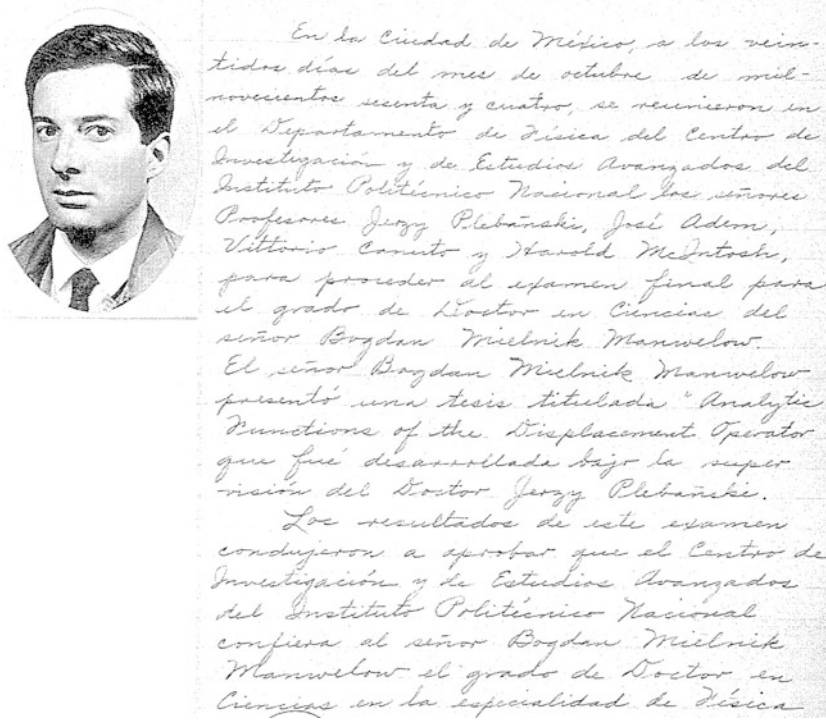 En la Ciudad de México, a los vein-
tidos días del mes de octubre de mil-
novecientos sesenta y cuatro, se reunieron en
el Departamento de Física del Centro de
Investigación y de Estudios Avanzados del
Instituto Politécnico Nacional los señores
Profesores Jerzy Plebański, José Adem,
Vittorio Canuto y Harold McIntosh,
para proceder al examen final para
el grado de Doctor en Ciencias del
señor Bogdan Mielnik Manwelow.
El señor Bogdan Mielnik Manwelow
presentó una tesis titulada "Analytic
Functions of the Displacement Operator
que fué desarrollada bajo la super
visión del Doctor Jerzy Plebański.
Los resultados de este examen
condujeron a aprobar que el Centro de
Investigación y de Estudios Avanzados
del Instituto Politécnico Nacional
confiera al señor Bogdan Mielnik
Manwelow el grado de Doctor en
Ciencias en la especialidad de Física